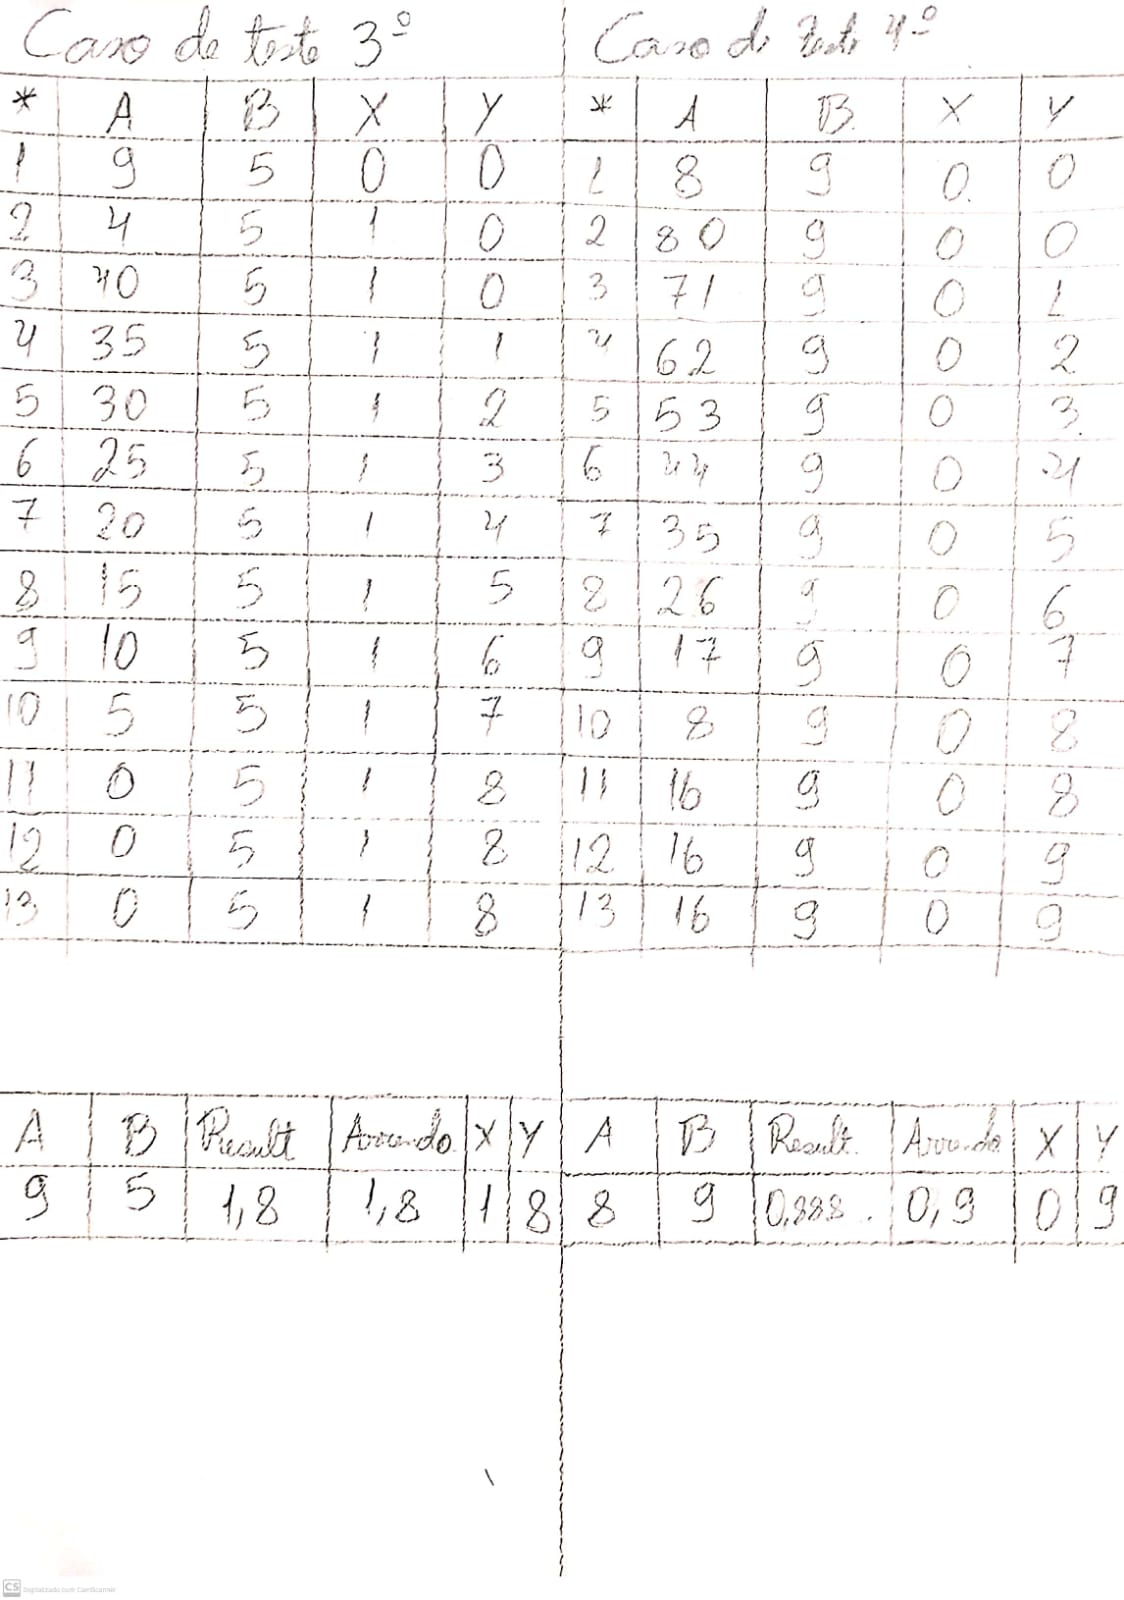 Caso de teste 3º
* A B X Y
1 9 5 0 0
2 4 5 1 0
3 40 5 1 0
4 35 5 1 1
5 30 5 1 2
6 25 5 1 3
7 20 5 1 4
8 15 5 1 5
9 10 5 1 6
10 5 5 1 7
11 0 5 1 8
12 0 5 1 8
13 0 5 1 8
A B Result Arrendo X Y
9 5 1,8 1,8 1 8
Caso de teste 4º
* A B X Y
1 8 9 0 0
2 80 9 0 0
3 71 9 0 1
4 62 9 0 2
5 53 9 0 3
6 44 9 0 4
7 35 9 0 5
8 26 9 0 6
9 17 9 0 7
10 8 9 0 8
11 16 9 0 8
12 16 9 0 9
13 16 9 0 9
A B Result. Arrendo X Y
8 9 0,888.. 0,9 0 9
CS Digitalizado com CamScanner